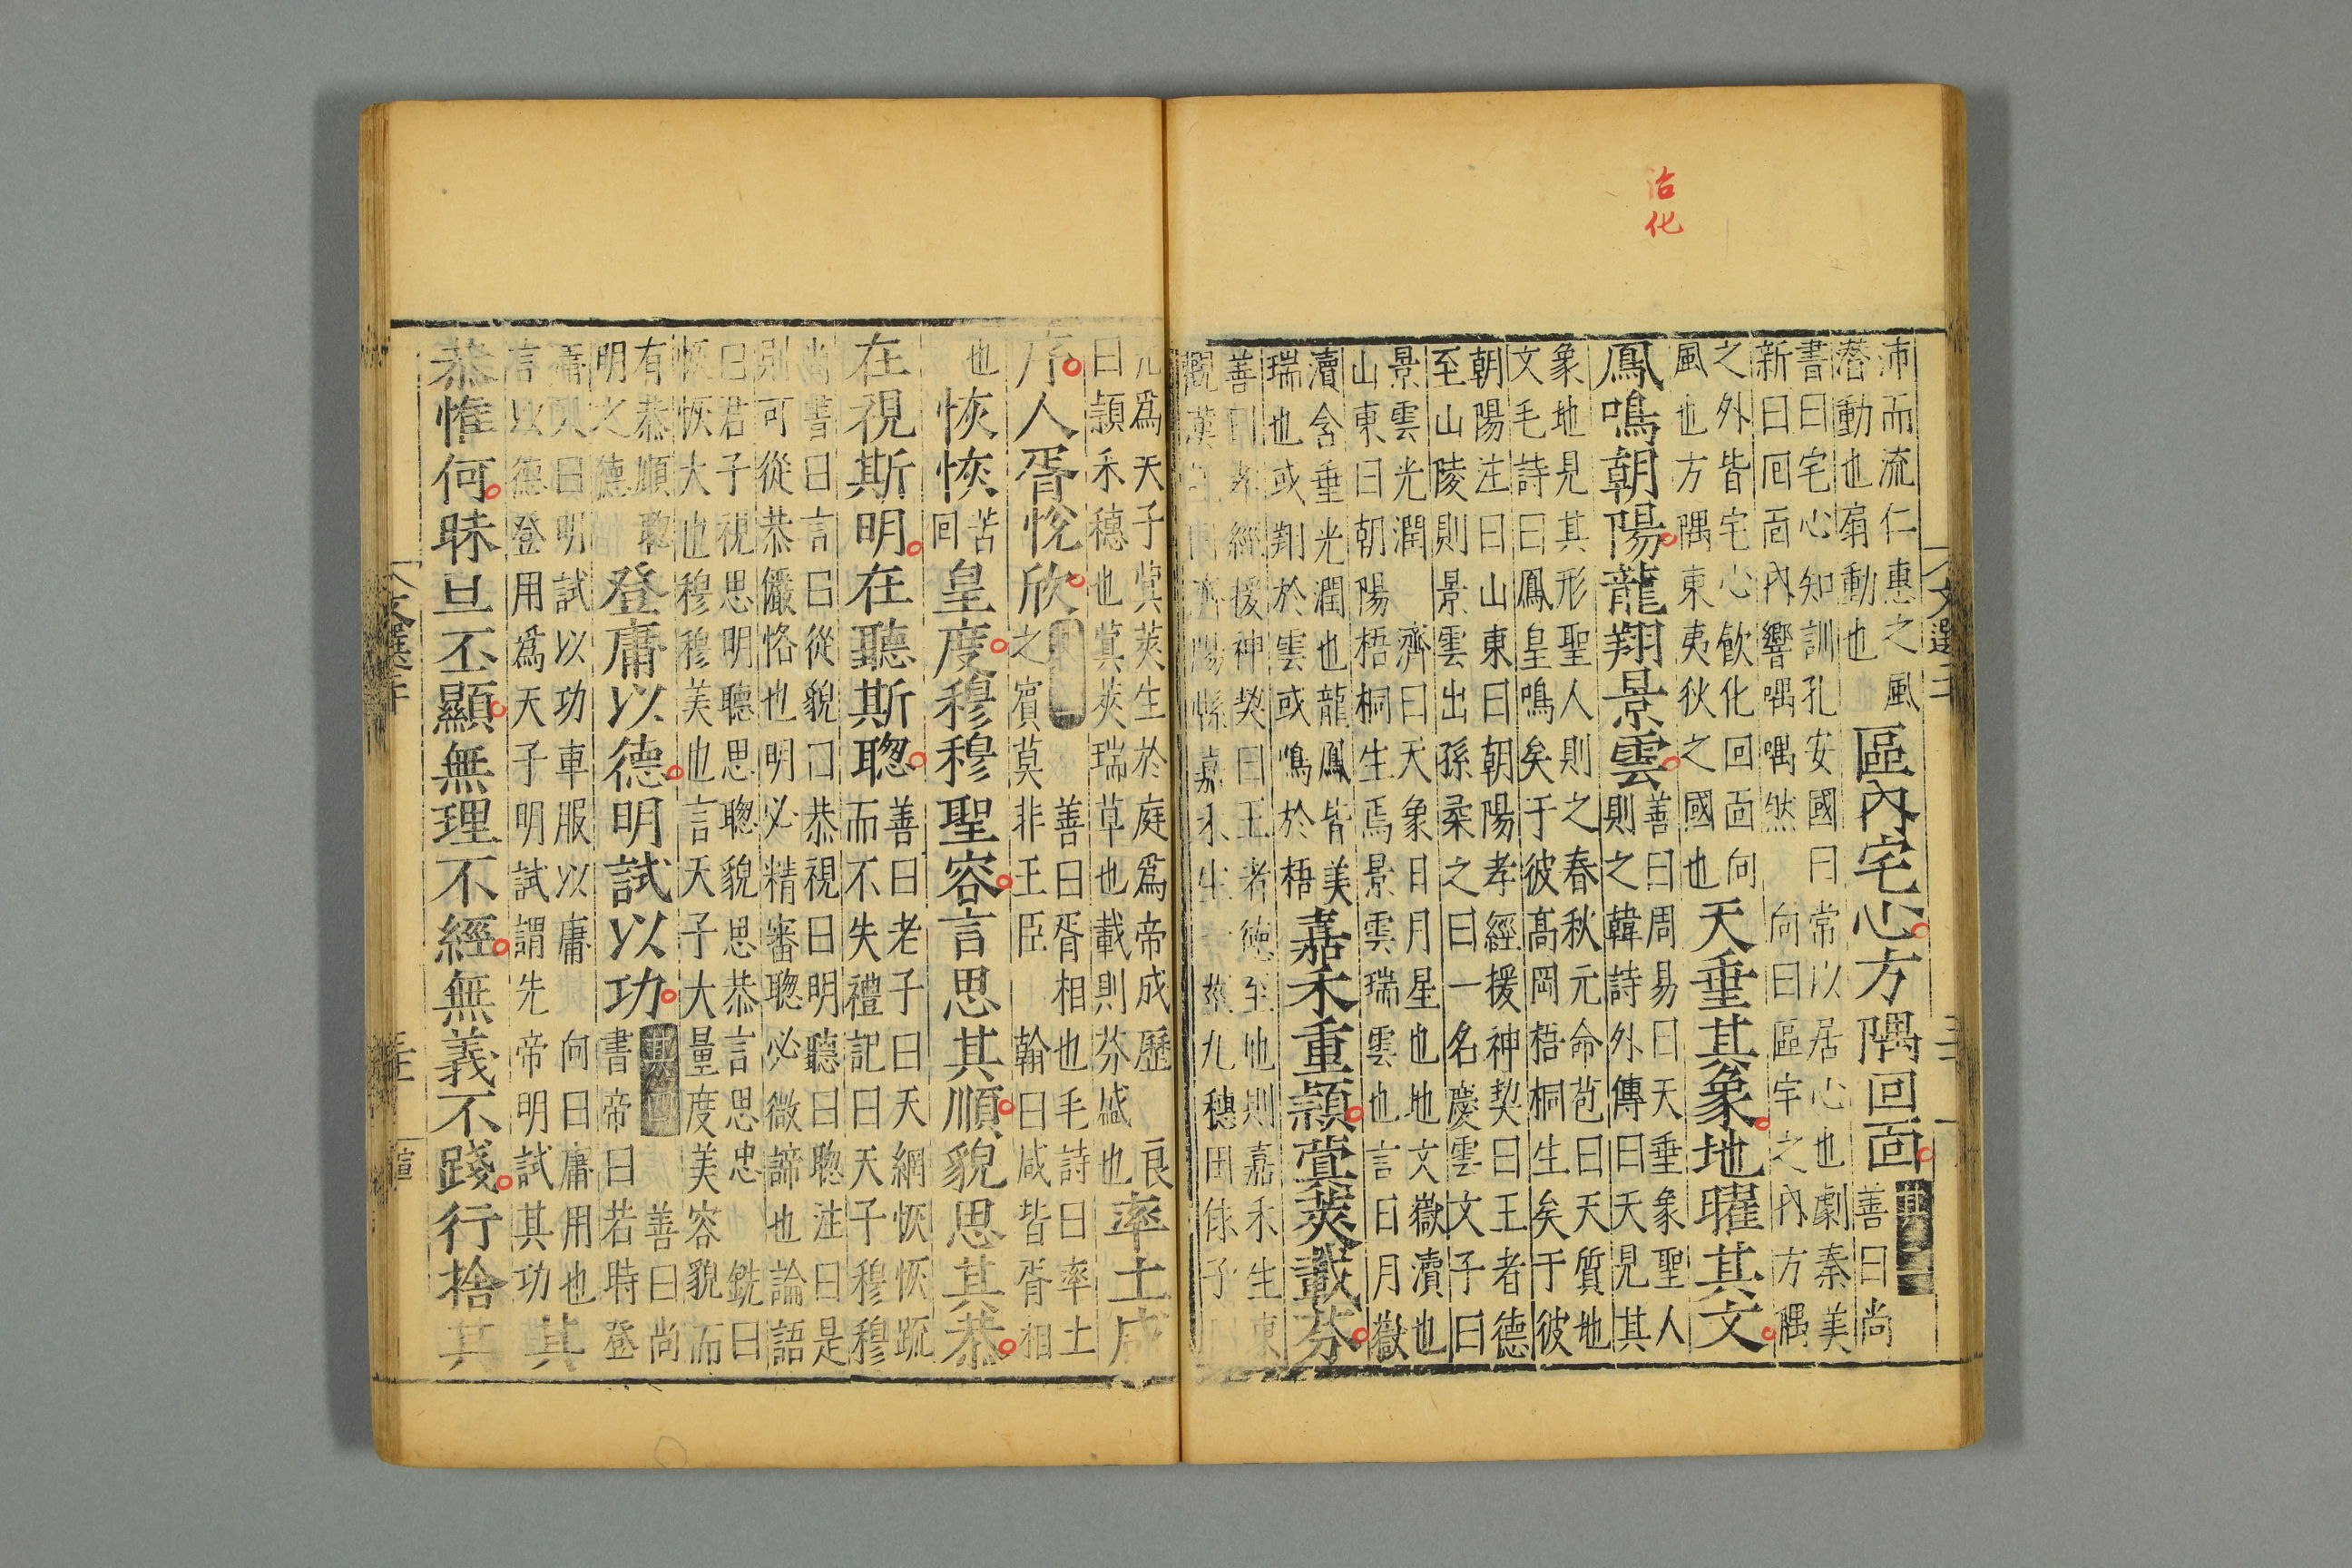 治化
沛而流仁惠之風
潜動也扇動也
區內宅心方隅回面
善曰尚
書曰宅心知訓孔安國曰常以居心也劇秦美
新曰回面內響喁喁然 向曰區宇之內方隅
之外皆宅心飲化回面向
風也方隅東夷狄之國也
天垂其象地曜其文
鳳鳴朝陽龍翔景雲
善曰周易曰天垂象聖人
則之韓詩外傳曰天見其
象地見其形聖人則之春秋元命苞曰天質地
文毛詩曰鳳皇鳴矣于彼髙岡梧桐生矣于彼
朝陽注曰山東曰朝陽孝經援神契曰王者德
至山陵則景雲出孫柔之曰一名慶雲文子曰
景雲光潤 濟曰天象日月星也地文嶽瀆也
山東曰朝陽梧桐生焉景雲瑞雲也言日月嶽
瀆含垂光潤也龍鳳皆美
瑞也或翔於雲或鳴於梧
嘉禾重穎蓂莢載芬
善曰孝經援神契曰王者德至地則嘉禾生東
觀漢 曰濟陽縣嘉禾生一莖九穗因 子
元爲天子蓂莢生於庭爲帝成歷 良
曰穎禾穗也蓂莢瑞草也載則芬盛也
率土咸
序人胥悅欣
善曰胥相也毛詩曰率土
之賓莫非王臣 翰曰咸皆胥相
也
恢恢
苦回
皇度穆穆聖容言思其順貌思其恭
在視斯明在聽斯聦
善曰老子曰天網恢恢䟽
而不失禮記曰天子穆穆
尚書曰言曰從貌曰恭視曰明聽曰聦注曰是
則可從恭儼恪也明必精審聦必微諦也論語
曰君子視思明聽思聦貌思恭言思忠 銑曰
恢恢大也穆穆美也言天子大量度美容貌而
有恭順聦
明之德
登庸以德明試以功
善曰尚
書帝曰若時登
庸 曰明試以功車服以庸 向曰庸用也
言以德登用爲天子明試謂先帝明試其功
其
恭惟何昧旦丕顯無理不經無義不踐行捨其